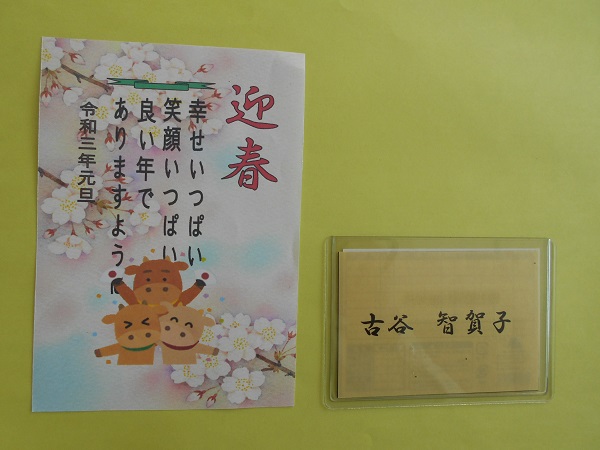 迎春
幸せいっぱい
笑顔いっぱい
良い年で
ありますように
令和三年元旦
古谷 智賀子